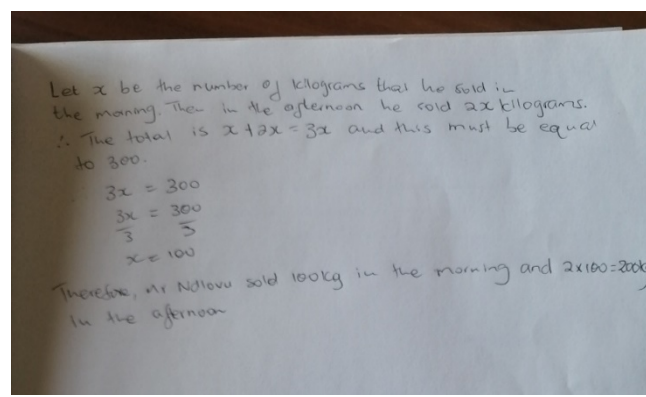 Let x be the number of kilograms that he sold in
the morning. Then in the afternoon he sold 2x kilograms.
∴ The total is x+2x = 3x and this must be equal
to 300.
3x = 300
3x/3 = 300/3
x = 100
Therefore, Mr Ndlovu sold 100kg in the morning and 2x100=200k
in the afternoon